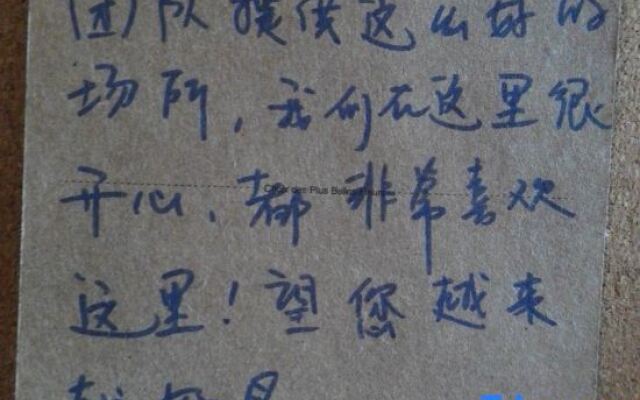 团队提供这么好的
场所，我们在这里很
开心、都非常喜欢
这里！望您越来